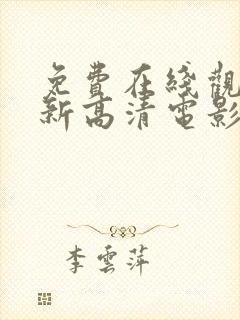 免費在綫觀
新高清電影
李雲萍